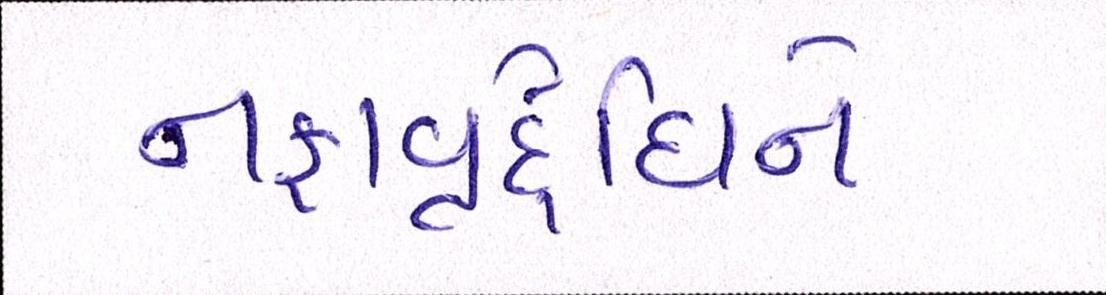 નફાવૃદ્ધિને